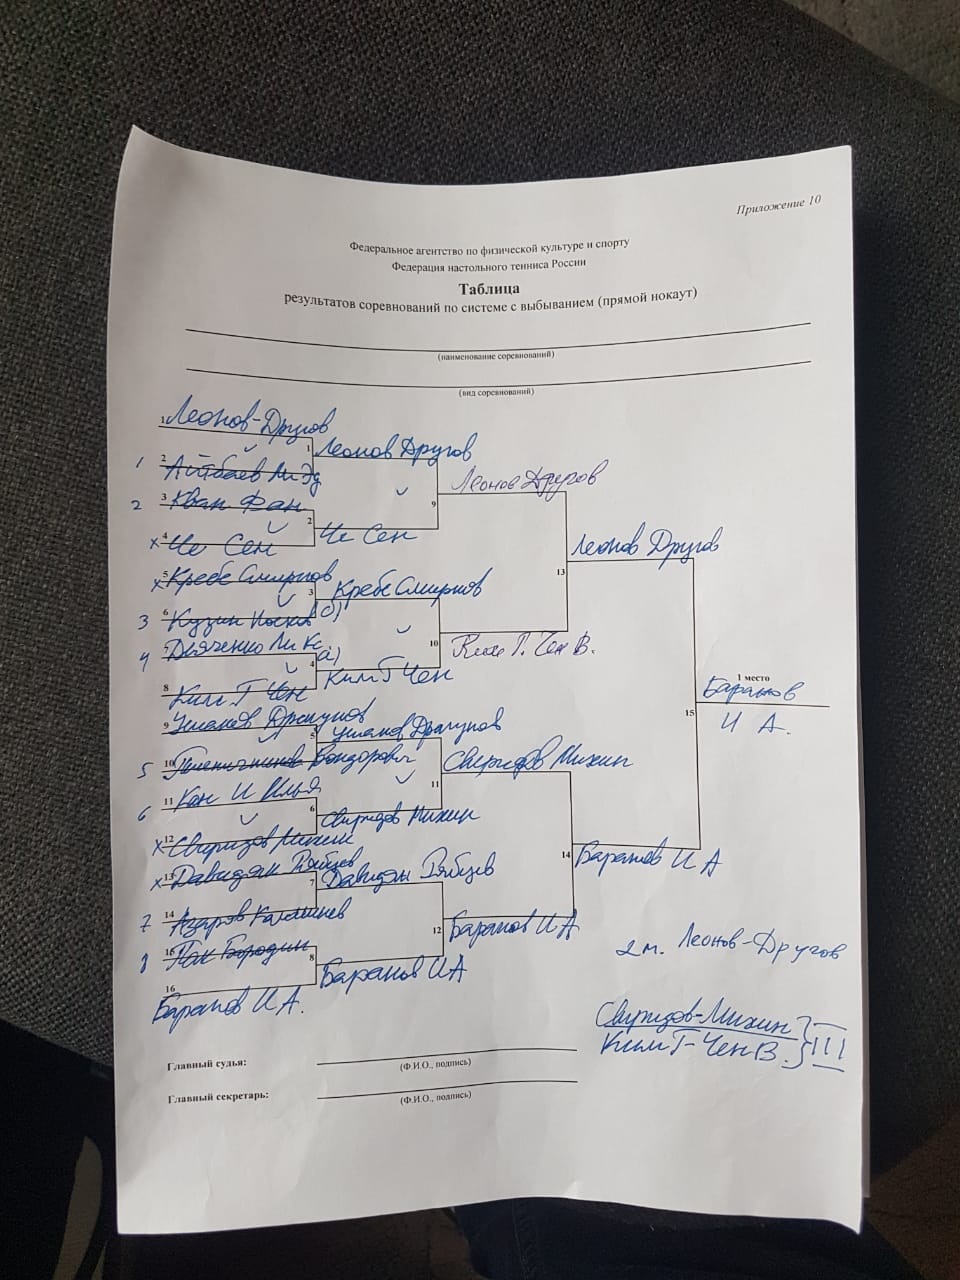 Приложение 10
Федеральное агентство по физической культуре и спорту
Федерация настольного тенниса России
Таблица
результатов соревнований по системе с выбыванием (прямой нокаут)
(наименование соревнований)
(вид соревнований)
1 Леонов-Другов
1 Леонов Другов
1 2 Айтбаев Ли Эд
9 Леонов Другов
2 3 Кван Фан
2 Че Сен
х 4 Че Сен
13 Леонов Другов
х 5 Кребс Смирнов
3 Кребс Смирнов
3 6 Кузин Носков б)
10 Ким Г. Чен В.
4 Дьяченко Ли Кс. а)
4 Ким Г Чен
8 Ким Г Чен
15
1 место
Баранов
И А.
9 Ушаков Драгунов
5 Ушаков Драгунов
5 10 Пшеничников Бондорович
11 Свиридов Михин
6 11 Кан И Илья
6 Свиридов Михин
х 12 Свиридов Михин
14 Баранов И А
х 13 Давидян Рябцев
7 Давидян Рябцев
7 14 Азаров Калинчев
12 Баранов И А
8 15 Пак Бородин
8 Баранов И А
16
Баранов И А.
2 м. Леонов-Другов
Свиридов-Михин
Ким Г-Чен В. } III
Главный судья:
(Ф.И.О., подпись)
Главный секретарь:
(Ф.И.О., подпись)